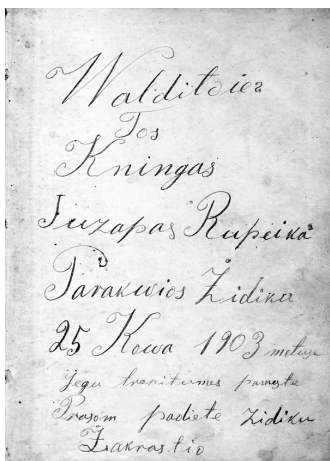 Walditoies
Tos
Kningas
Juzapas Rupeika
Parakwios Židiku
25 Kowa 1903 metuse
Jegu trenitumes pamesta
Prasom padiete Zidiku
Zakrastio